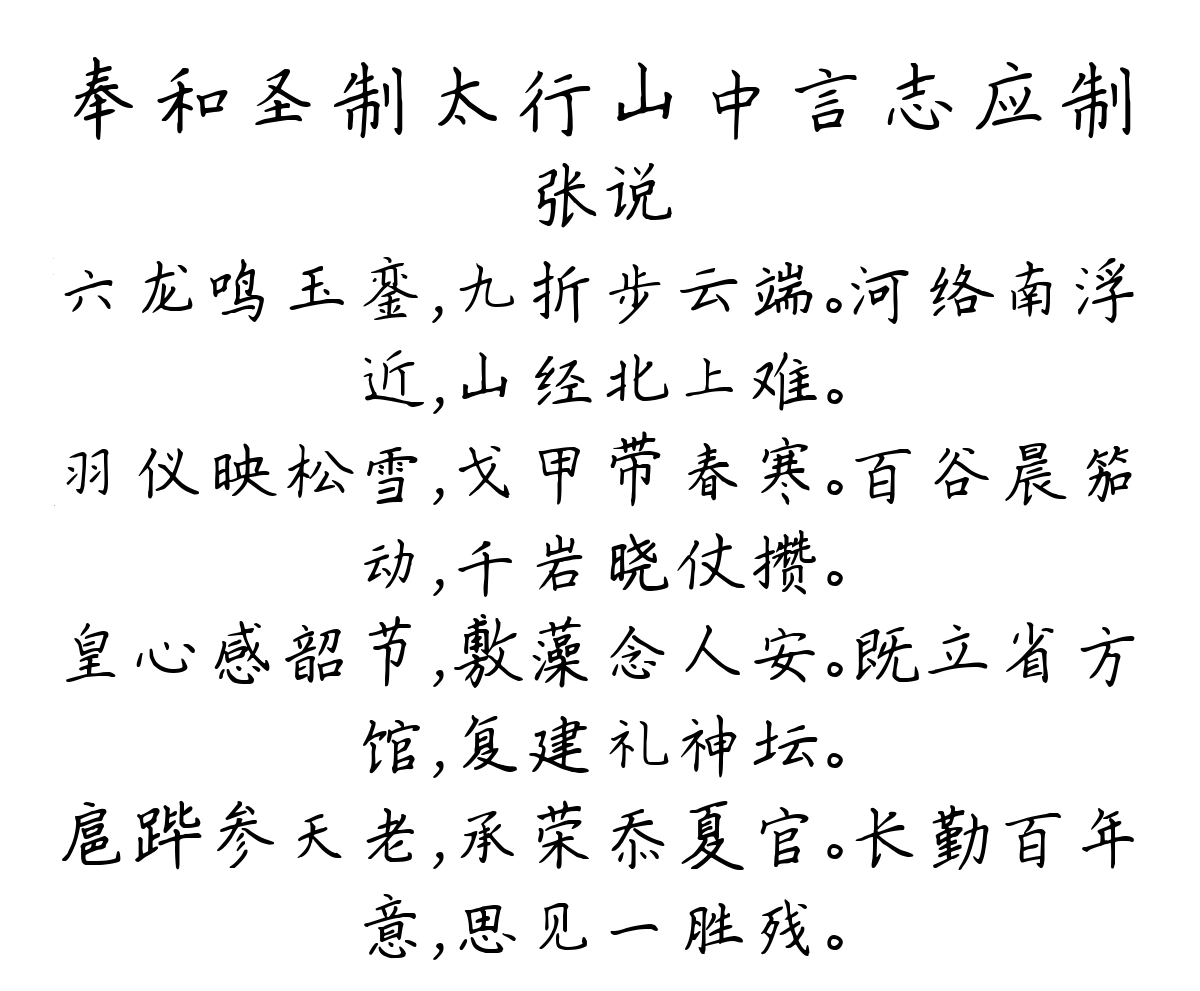 奉和圣制太行山中言志应制
张说
六龙鸣玉銮,九折步云端。河络南浮
近,山经北上难。
羽仪映松雪,戈甲带春寒。百谷晨笳
动,千岩晓仗攒。
皇心感韶节,敷藻念人安。既立省方
馆,复建礼神坛。
扈跸参天老,承荣忝夏官。长勤百年
意,思见一胜残。